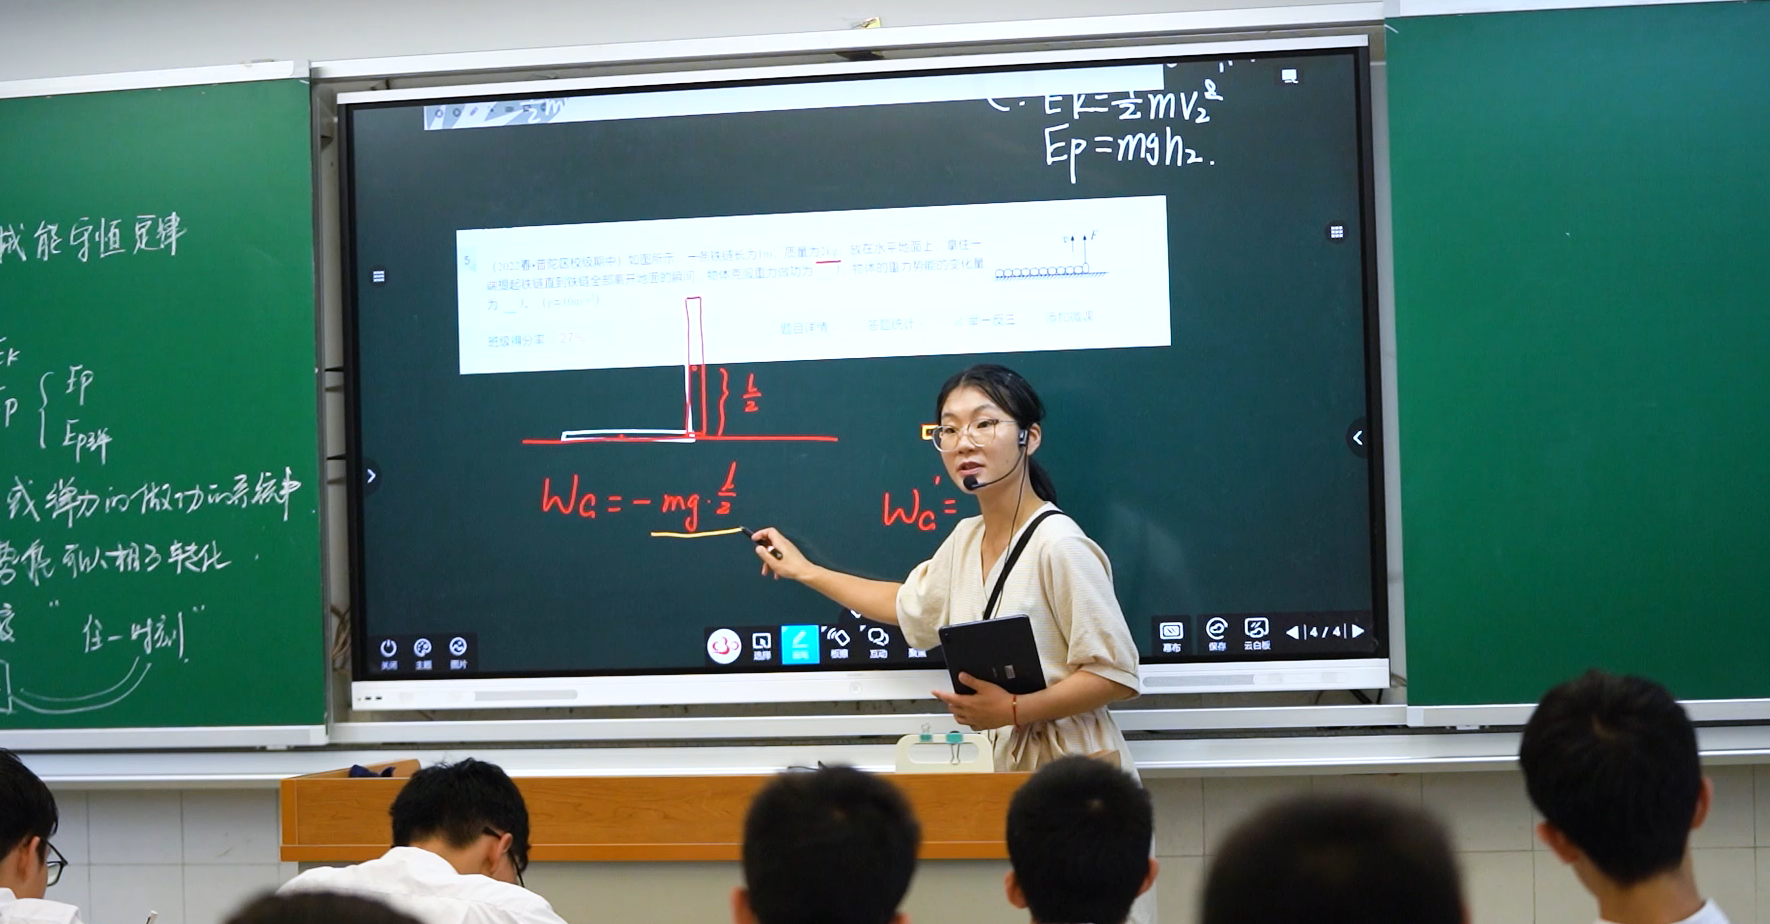 械能守恒定律
Ep
Ep弹
或弹力的做功的系统中
势能可以相互转化.
"任一时刻"
Ek=½mv₂²
Ep=mgh₂.
5
(2022春•普陀区校级期中) 如图所示 一条铁链长为1m, 质量为2kg, 放在水平地面上 拿住一
端提起铁链直到铁链全部离开地面的瞬间 物体克服重力做功为__J, 物体的重力势能的变化量
为__J。
F
班级得分率 27%
题目详情 答题统计 举一反三
L/2
W_G=-mg·L/2
W_G'=
关闭 主题 图片
选择 板擦 互动
幕布 保存 云白板
4/4